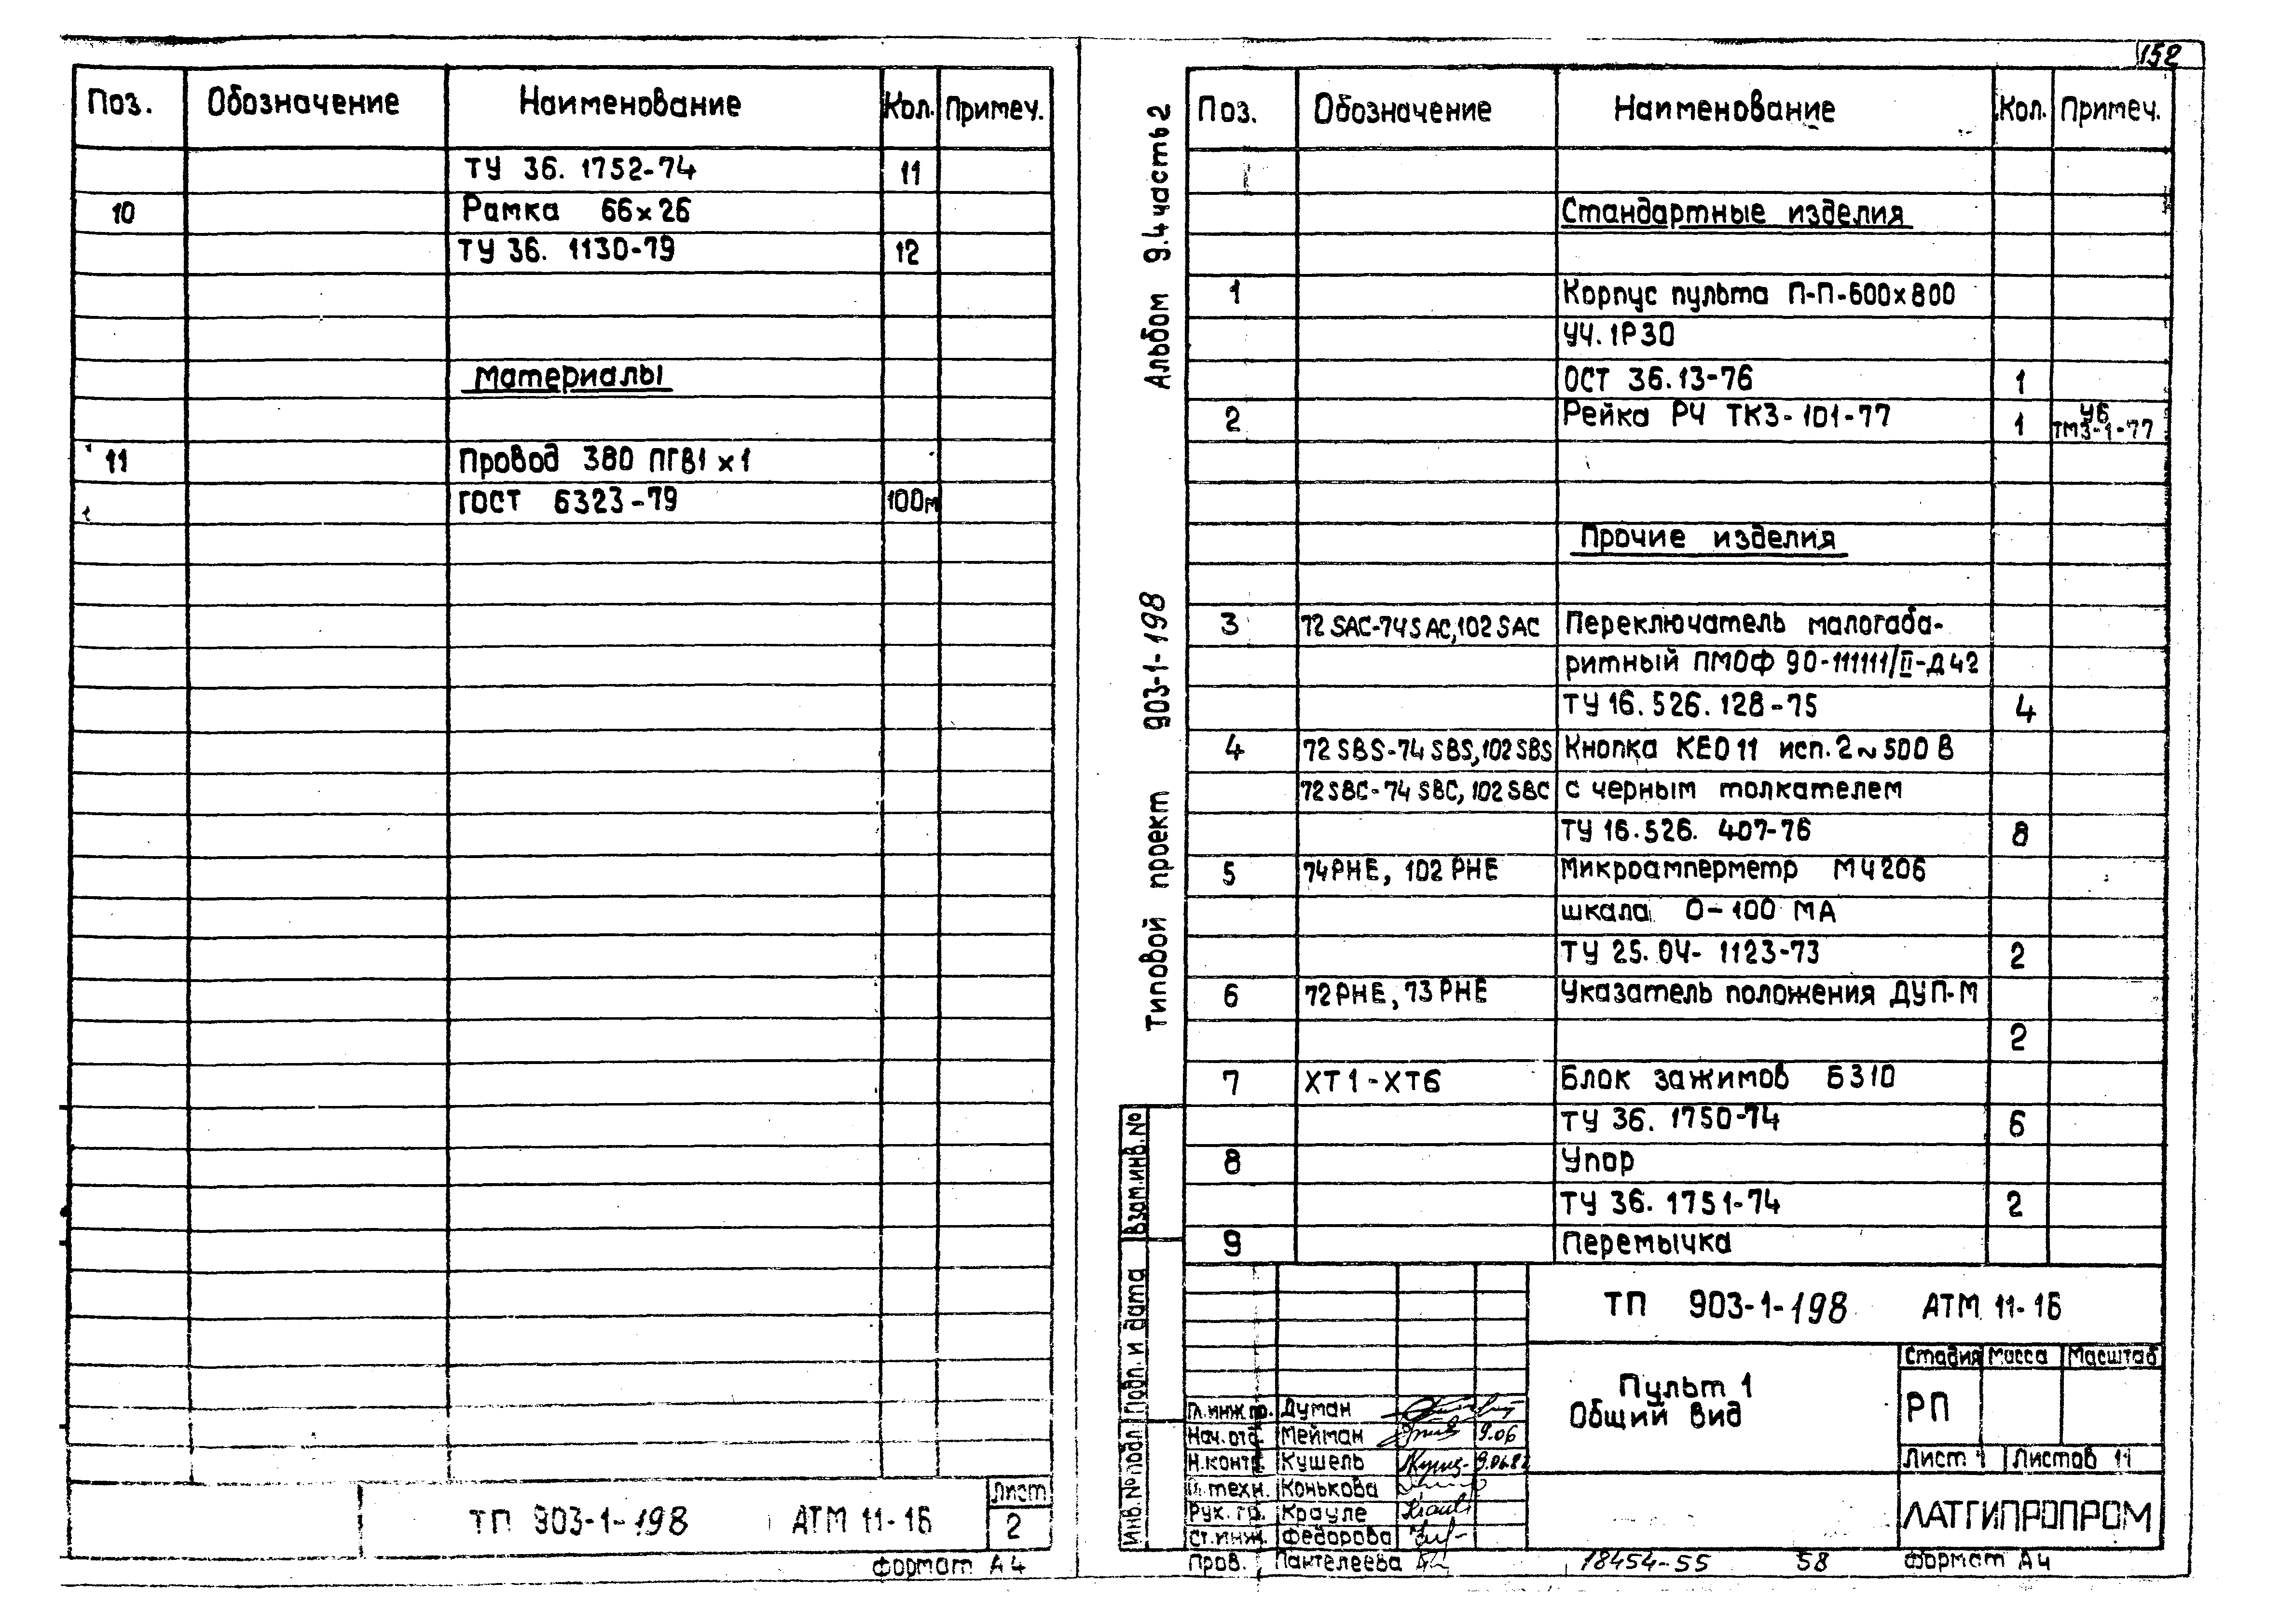 152
Поз. Обозначение Наименование Кол. Примеч.
ТУ 36. 1752-74 11
10 Рамка 66х26
ТУ 36. 1130-79 12
Материалы
11 Провод 380 ПГВ1х1
ГОСТ 6323-79 100м
ТП 903-1-198 АТМ 11-16
Лист
2
Формат А4
Типовой проект 903-1-198 Альбом 9.4 часть 2
Поз. Обозначение Наименование Кол. Примеч.
Стандартные изделия
1 Корпус пульта П-П-600х800
УЧ. 1Р30
ОСТ 36.13-76 1
2 Рейка РЧ ТК3-101-77 1 У6 ТМ3-1-77
Прочие изделия
3 72SAC-74SAC,102SAC Переключатель малогаба-
ритный ПМОФ 90-111111/II-Д42
ТУ 16.526.128-75 4
4 72SBS-74SBS,102SBS Кнопка КЕ011 исп.2~500В
72SBC-74SBC, 102SBC с черным толкателем
ТУ 16.526. 407-76 8
5 74РНЕ, 102РНЕ Микроамперметр М4206
шкала 0-100 МА
ТУ 25.04-1123-73 2
6 72РНЕ, 73РНЕ Указатель положения ДУП-М
2
7 ХТ1-ХТ6 Блок зажимов Б310
ТУ 36. 1750-74 6
8 Упор
ТУ 36. 1751-74 2
9 Перемычка
Взам.инв.№
Подп. и дата
Инв.№подл
ТП 903-1-198 АТМ 11-16
Пульт 1
Общий вид
Стадия Масса Масштаб
РП
Лист 1 Листов 11
ЛАТГИПРОПРОМ
Гл.инж.пр. Думан
Нач.отд. Мейман 9.06
Н.контр. Кушель 9.06.82
Гл.техн. Конькова
Рук. гр. Крауле
Ст.инж. Федорова
Пров. Пантелеева
18454-55 58 Формат А4